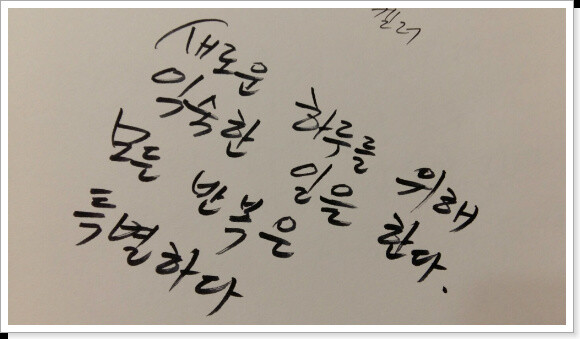 새로운 하루를 위해
익숙한 일을 한다.
모든 반복은
특별하다